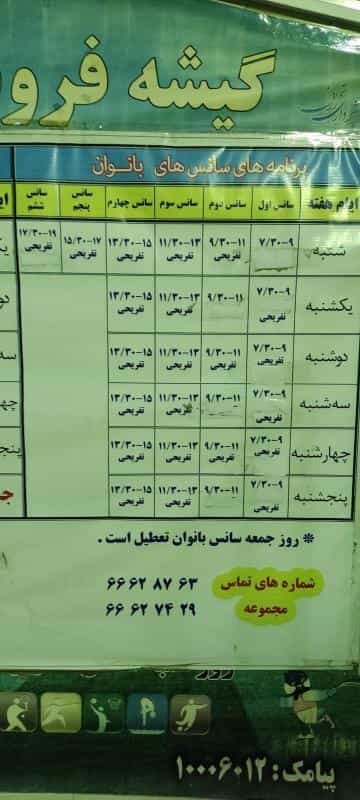 گیشه فرو
برنامه های سانس های بانوان
ایام هفته سانس اول سانس دوم سانس سوم سانس چهارم سانس پنجم سانس ششم
شنبه ۷/۳۰-۹ ۹/۳۰-۱۱ تفریحی ۱۱/۳۰-۱۳ تفریحی ۱۳/۳۰-۱۵ تفریحی ۱۵/۳۰-۱۷ تفریحی ۱۷/۳۰-۱۹ تفریحی
یکشنبه ۷/۳۰-۹ تفریحی ۹/۳۰-۱۱ ۱۱/۳۰-۱۳ تفریحی ۱۳/۳۰-۱۵ تفریحی
دوشنبه ۷/۳۰-۹ تفریحی ۹/۳۰-۱۱ تفریحی ۱۱/۳۰-۱۳ تفریحی ۱۳/۳۰-۱۵ تفریحی
سه‌شنبه ۷/۳۰-۹ تفریحی ۹/۳۰-۱۱ ۱۱/۳۰-۱۳ تفریحی ۱۳/۳۰-۱۵ تفریحی
چهارشنبه ۷/۳۰-۹ تفریحی ۹/۳۰-۱۱ تفریحی ۱۱/۳۰-۱۳ تفریحی ۱۳/۳۰-۱۵ تفریحی
پنجشنبه ۷/۳۰-۹ تفریحی ۹/۳۰-۱۱ ۱۱/۳۰-۱۳ تفریحی ۱۳/۳۰-۱۵ تفریحی
* روز جمعه سانس بانوان تعطیل است .
شماره های تماس ۶۶۶۲ ۸۷ ۶۳
مجموعه ۶۶ ۶۲ ۷۴ ۲۹
پیامک : ۱۰۰۰۶۰۱۲